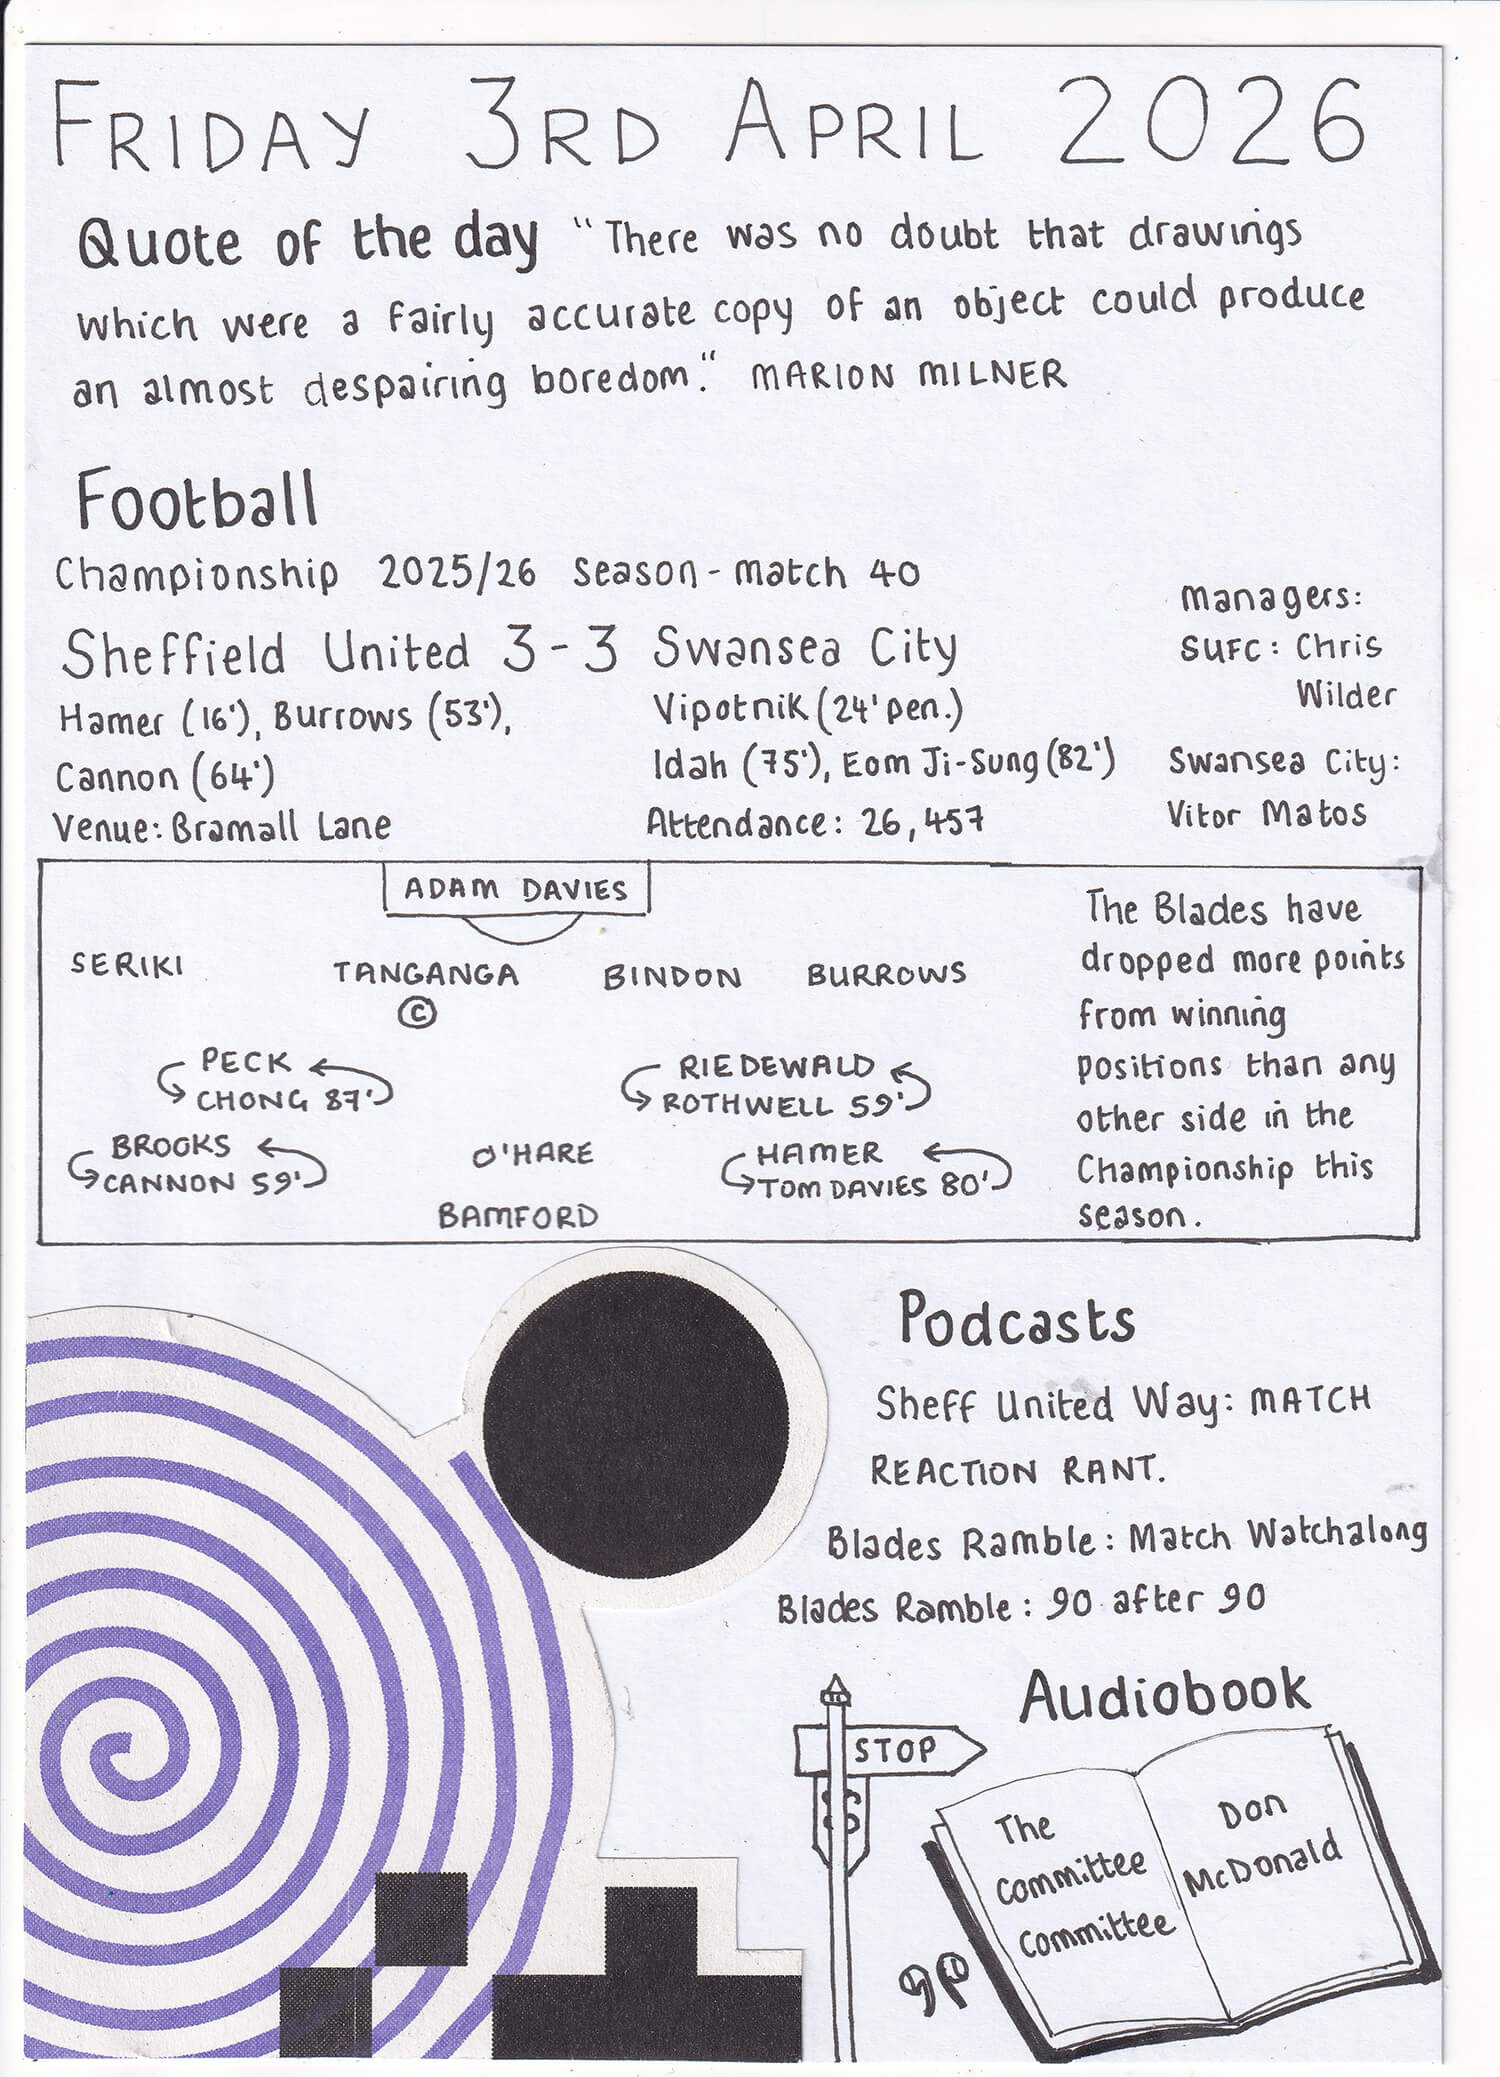 FRIDAY 3RD APRIL 2026
Quote of the day "There was no doubt that drawings
which were a fairly accurate copy of an object could produce
an almost despairing boredom." MARION MILNER
Football
Championship 2025/26 season - match 40
Sheffield United 3-3 Swansea City
Hamer (16'), Burrows (53'),
Cannon (64')
Venue: Bramall Lane
Vipotnik (24' pen.)
Idah (75'), Eom Ji-Sung (82')
Attendance: 26,457
Managers:
SUFC: Chris
Wilder
Swansea City:
Vitor Matos
ADAM DAVIES
SERIKI TANGANGA BINDON BURROWS
©
PECK
CHONG 87'
RIEDEWALD
ROTHWELL 59'
BROOKS
CANNON 59'
O'HARE
HAMER
TOM DAVIES 80'
BAMFORD
The Blades have
dropped more points
from winning
positions than any
other side in the
Championship this
season.
Podcasts
Sheff United Way: MATCH
REACTION RANT.
Blades Ramble: Match Watchalong
Blades Ramble: 90 after 90
Audiobook
STOP
The
Committee
Committee
Don
McDonald